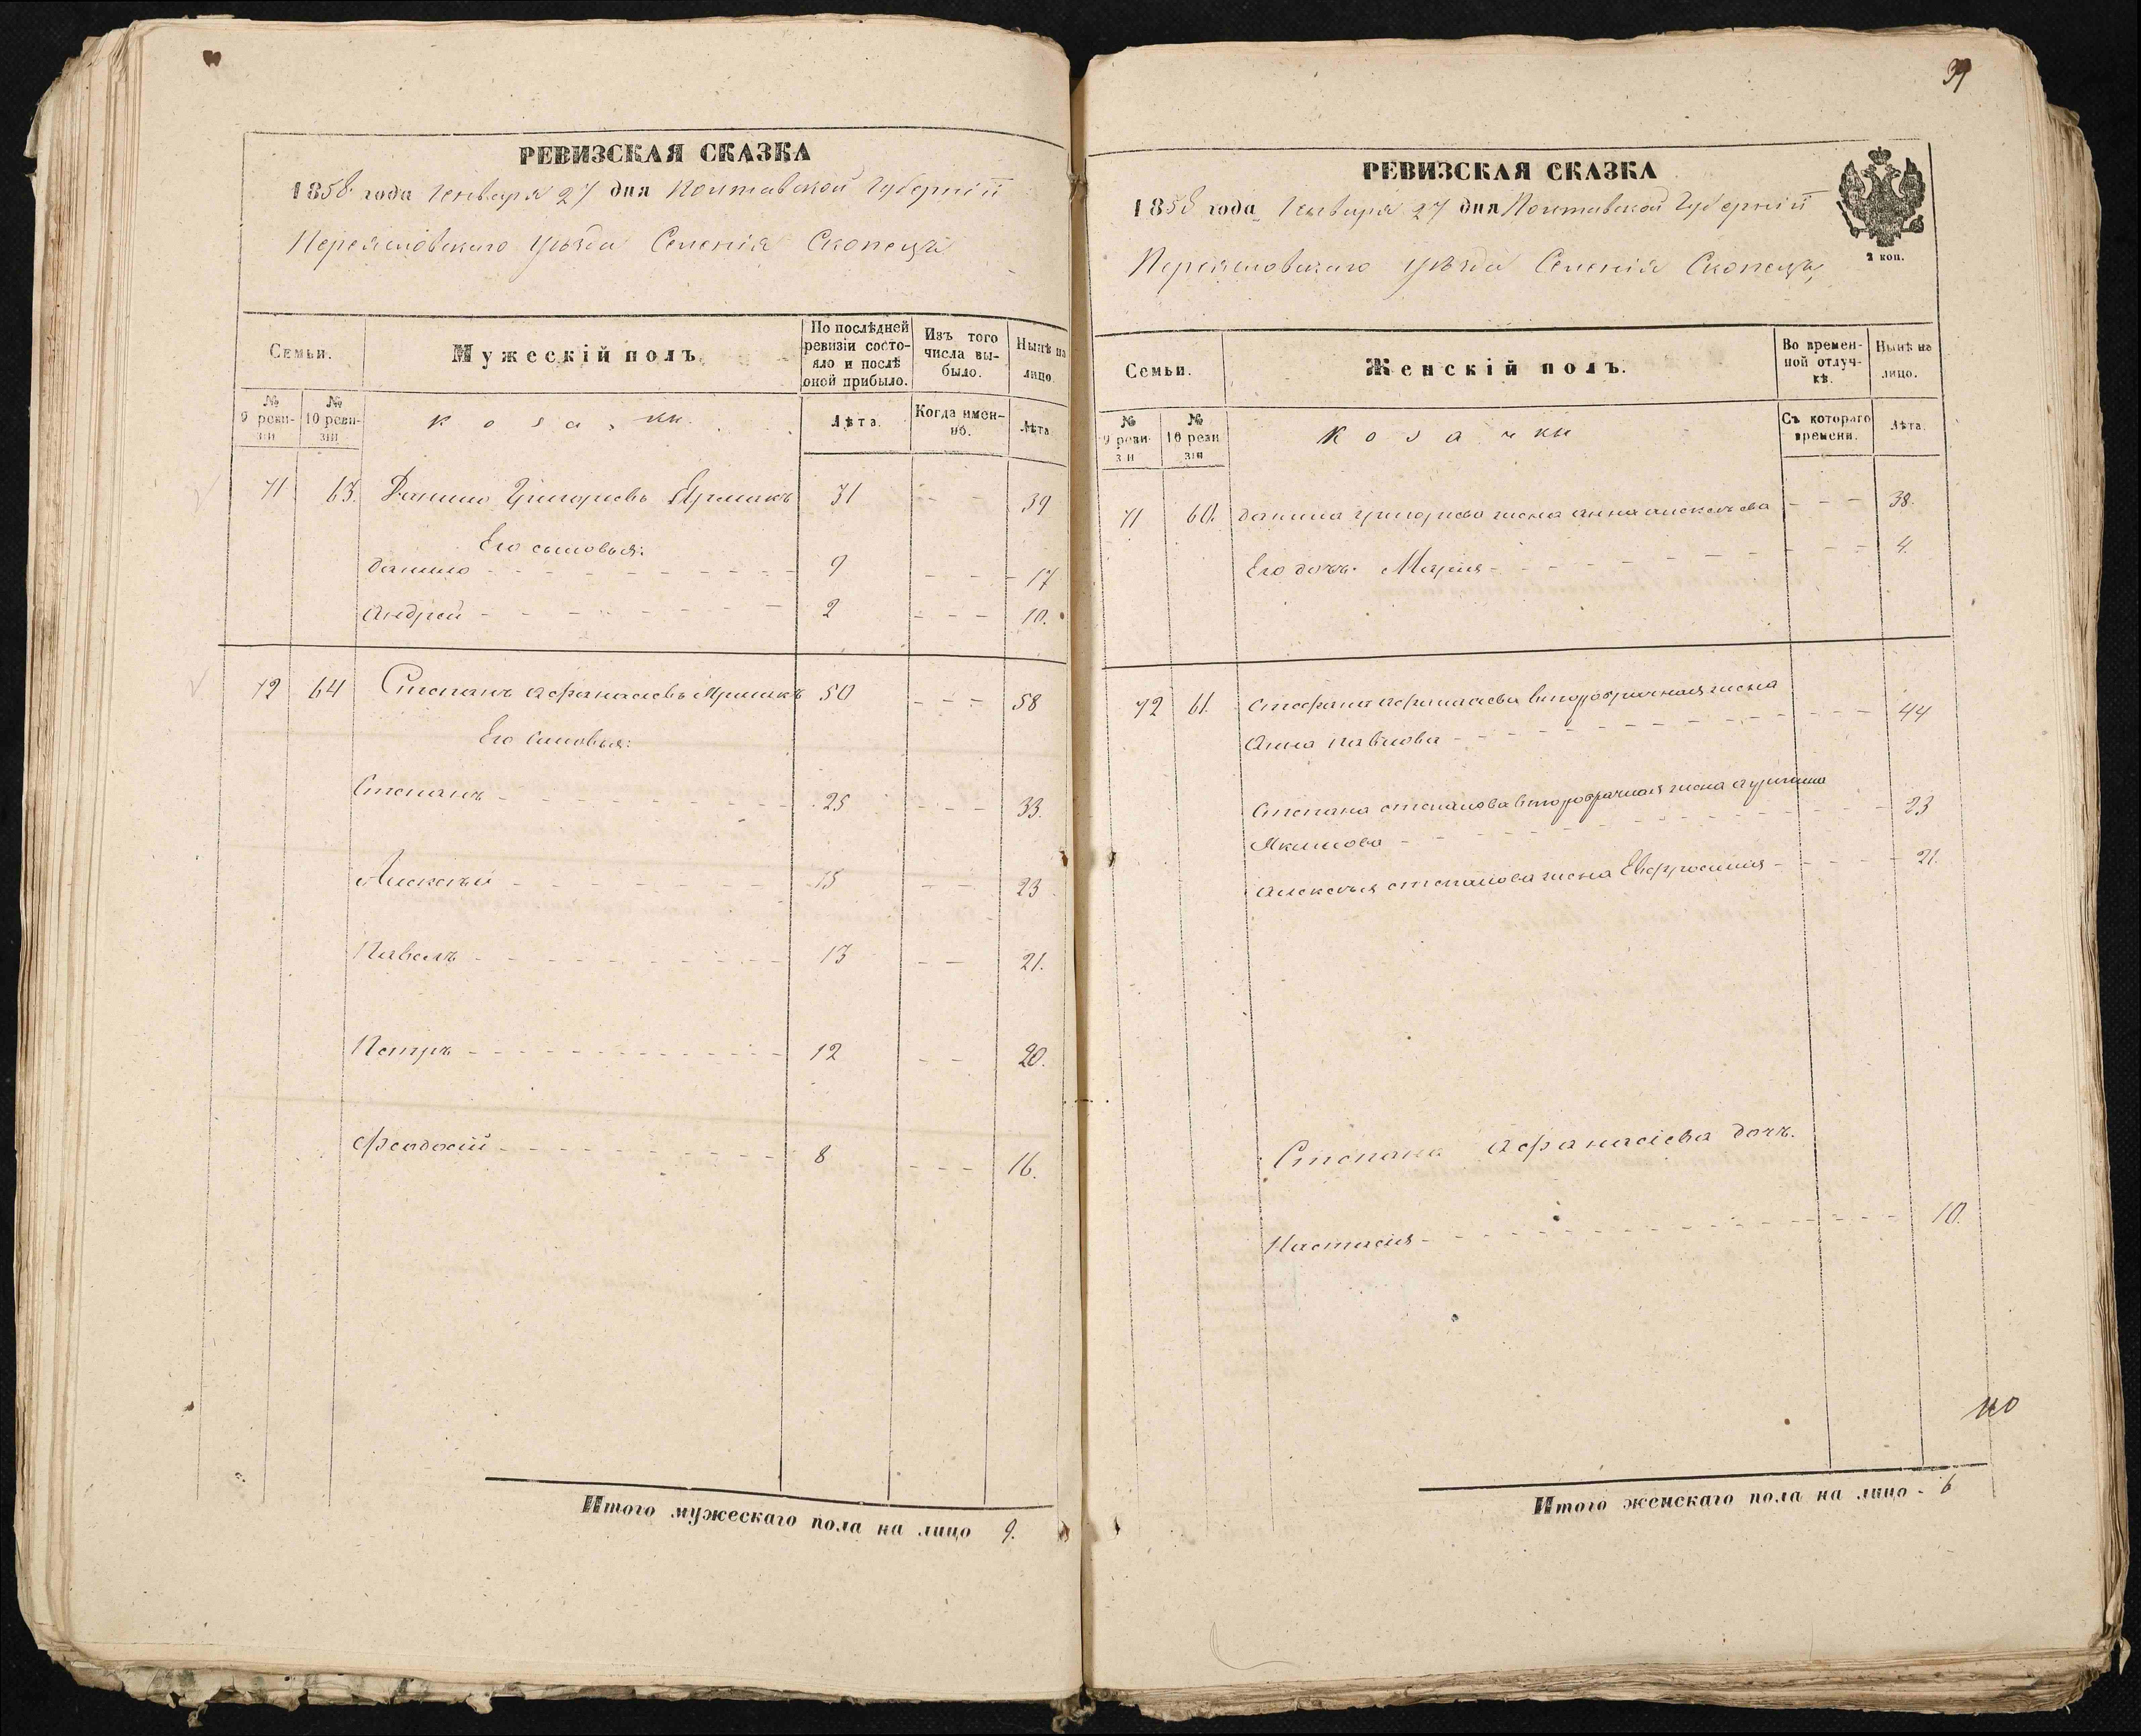 РЕВИЗСКАЯ СКАЗКА
1858 года Генваря 27 дня Полтавской Губерніи
Переясловскаго уѣзда Селенія Скопецъ
Семьи.
Мужескій полъ.
По послѣдней ревизіи состояло и послѣ оной прибыло.
Изъ того числа выбыло.
Нынѣ на лицо.
№ 9 ревизіи
№ 10 ревизіи
козаки.
Лѣта.
Когда именно.
Лѣта
71 63. Данило Григорьевъ Ярмакъ 31 - - - 39
Его сыновья:
Данило - - - 9 - - - 17
Андрей - - - 2 - - - 10.
72 64 Степанъ Афанасіевъ Ярмакъ 50 - - - 58
Его сыновья:
Степанъ - - - 25 - - - 33.
Алексѣй - - - 15 - - - 23
Павелъ - - - 13 - - 21.
Петръ - - - 12 - - 20.
Феодосій - - - 8 - - - 16.
Итого мужескаго пола на лицо 9.
39
РЕВИЗСКАЯ СКАЗКА
1858 года Генваря 27 дня Полтавской Губерніи
2 коп.
Переясловскаго уѣзда Селенія Скопецъ
Семьи.
Женскій полъ.
Во временной отлучкѣ.
Нынѣ на лицо.
№ 9 ревизіи
№ 10 ревизіи
козачки
Съ котораго времени.
Лѣта.
71 60. Данила Григорьева жена Анна Алексѣева - - - 38.
Его дочь Марія - - - 4.
72 61. Стефана Афанасіева второбрачная жена
Анна Павлова - - - 44
Степана Степанова второбрачная жена
Якимова - - - 23
Алексѣя Степанова жена Евфросинія - - - 21.
Степана Афанасіева дочь.
Настасія - - - 10.
Итого женскаго пола на лицо - 6